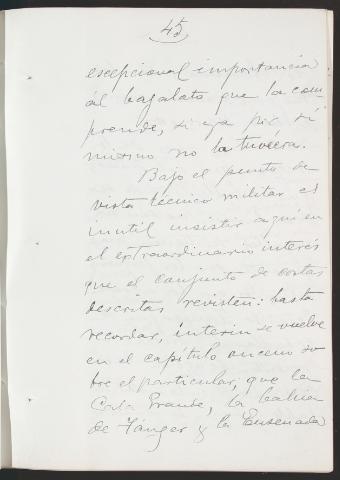 45
escepcional importancia
al bajalato que la com
prende, si ya por si
mismo no la tuviera.
Bajo el punto de
vista técnico militar es
inutil insistir aqui en
el extraordinario interés
que el conjunto de costas
descritas revisten: basta
recordar, interin se vuelve
en el capítulo onceno so
bre el particular, que la
Cala Grande, la bahia
de Tánger y la Ensenada